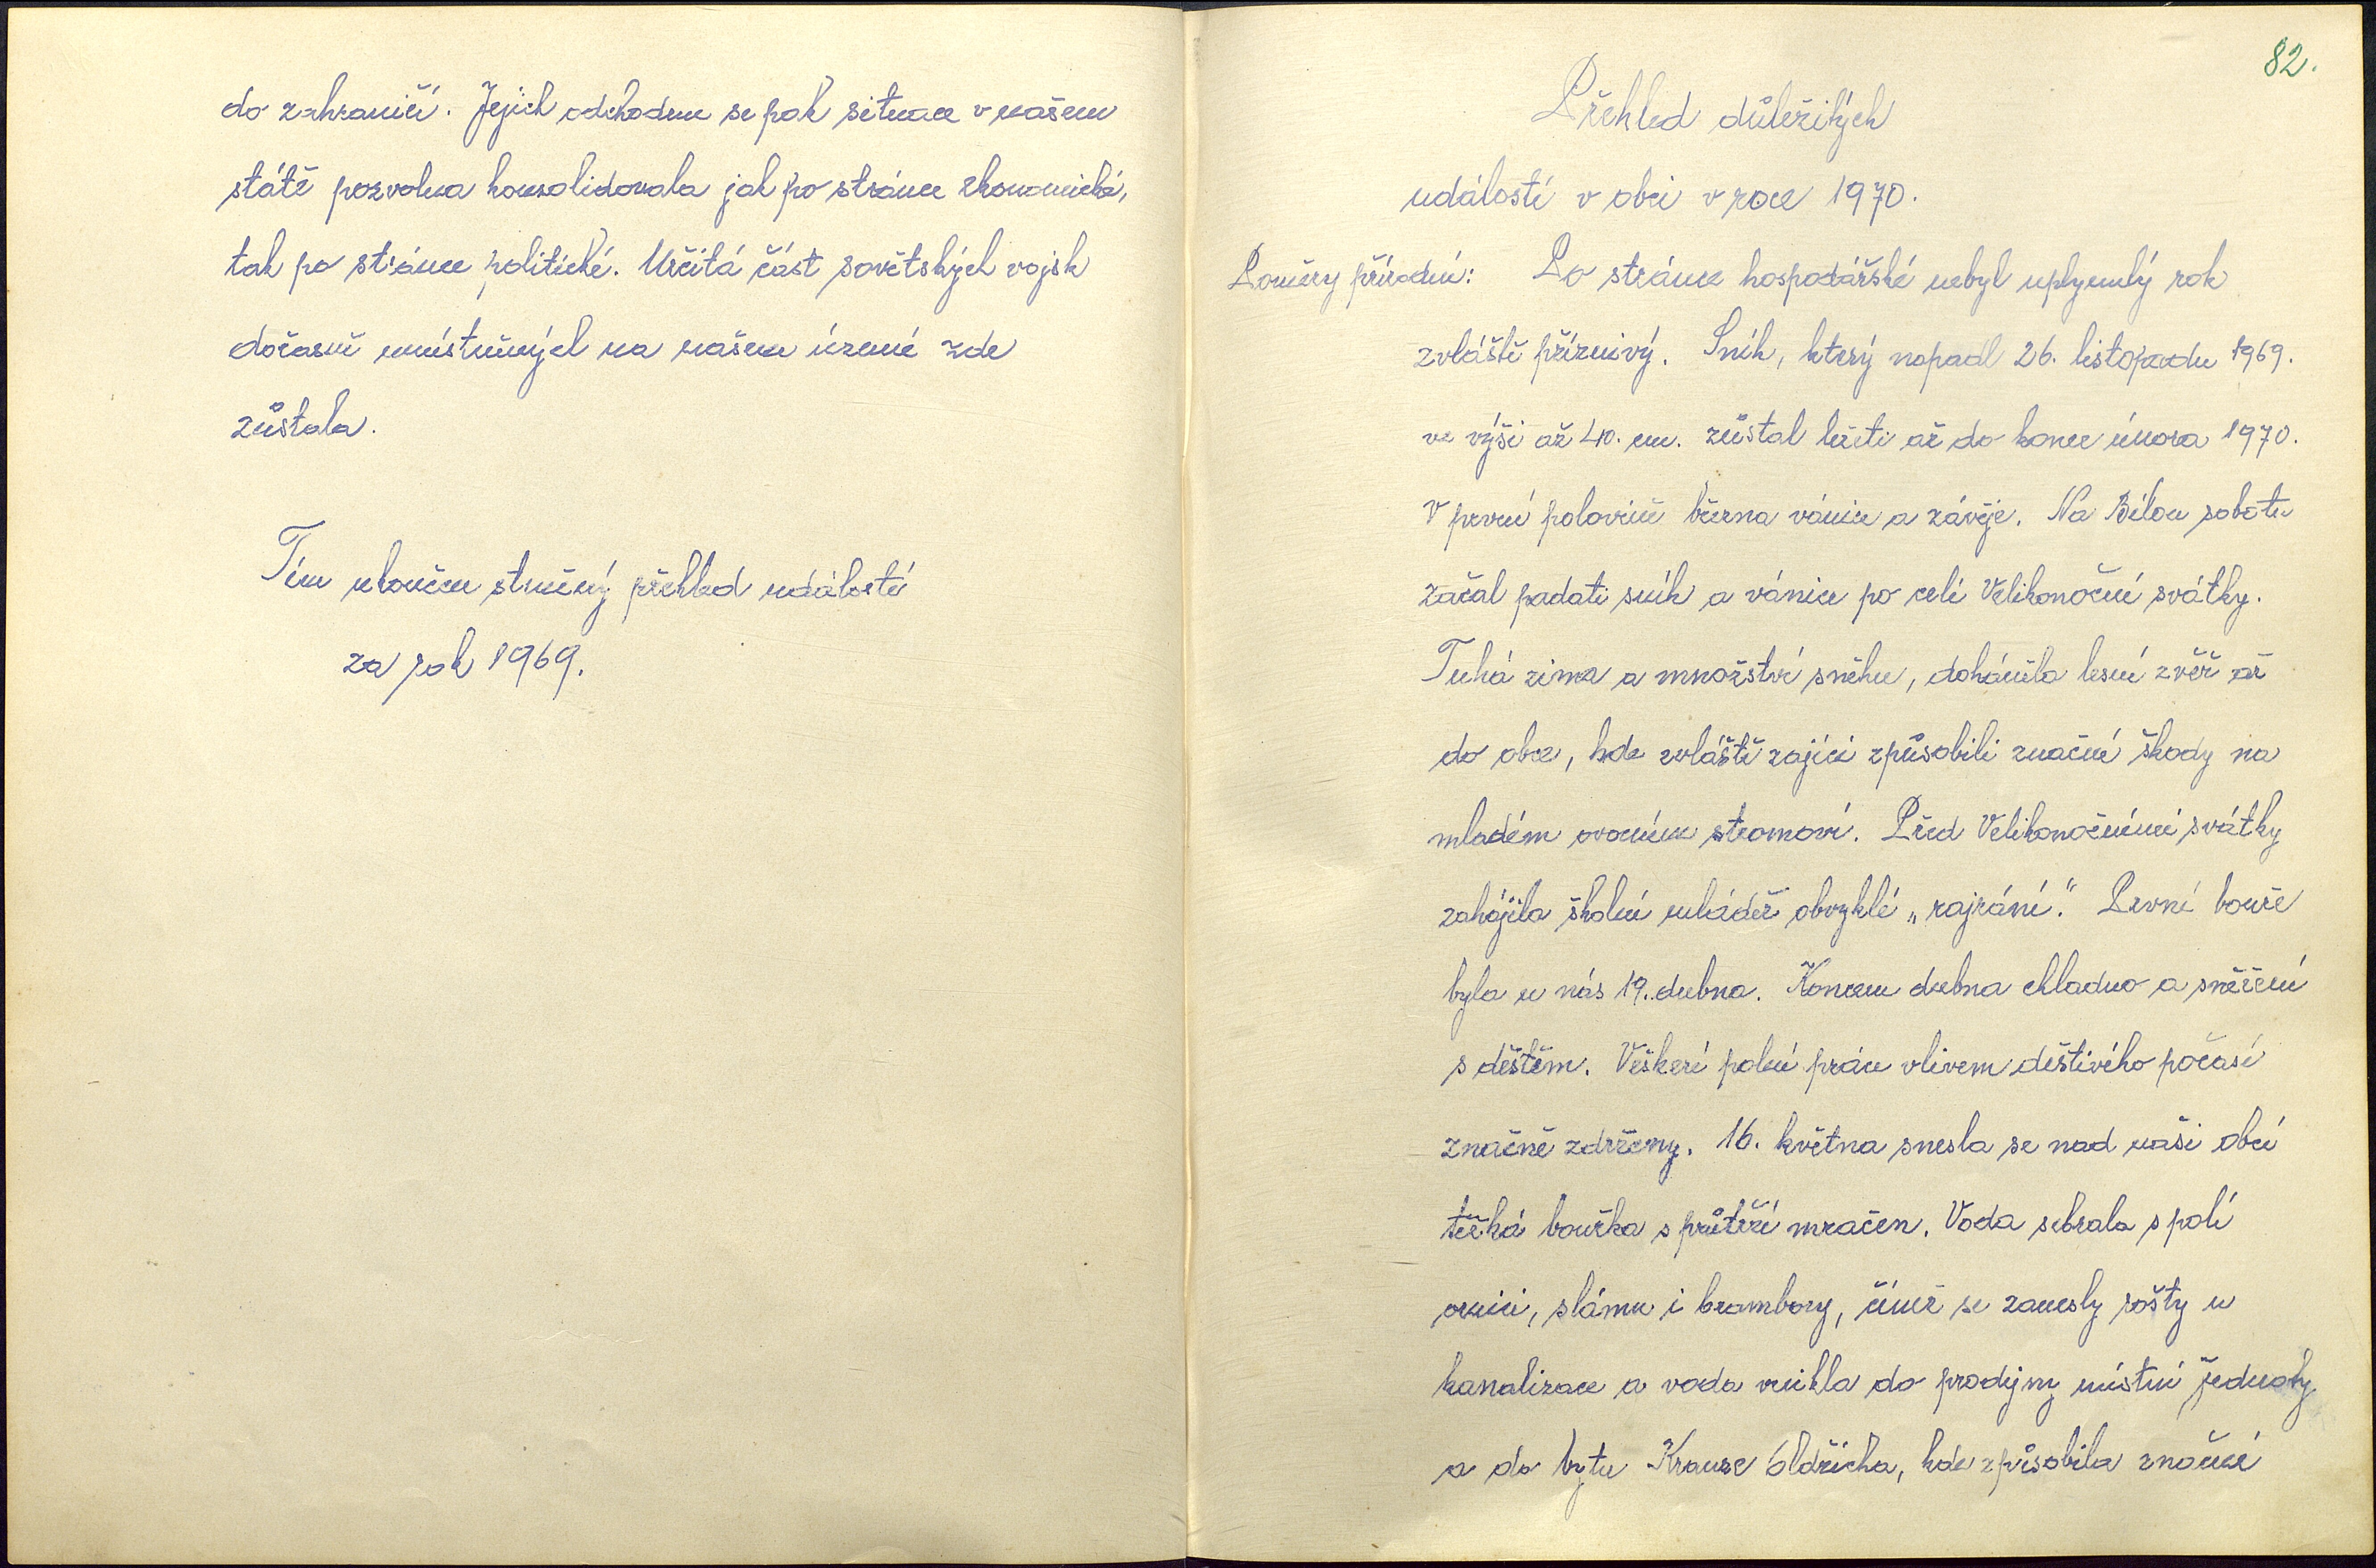 do zahraničí. Jejich odchodem se pak situace v našem
státě pozvolna konsolidovala jak po stránce ekonomické,
tak po stránce politické. Určitá část sovětských vojsk
dočasně umístněných na našem území zde
zůstala.
Tím ukončen stručný přehled událostí
za rok 1969.
82.
Přehled důležitých
událostí v obci v roce 1970.
Poměry přírodní: Po stránce hospodářské nebyl uplynulý rok
zvláště příznivý. Sníh, který napadl 26. listopadu 1969.
ve výši až 40. cm. zůstal ležeti až do konce února 1970.
V první polovině března vánice a závěje. Na Bílou sobotu
začal padati sníh a vánice po celé Velikonoční svátky.
Tuhá zima a množství sněhu, doháněla lesní zvěř až
do obce, kde zvláště zajíci způsobili značné škody na
mladém ovocném stromoví. Před Velikonočními svátky
zahájila školní mládež obvyklé „rajzání." První bouře
byla u nás 19. dubna. Koncem dubna chladno a sněžení
s deštěm. Veškeré polní práce vlivem deštivého počasí
značně zdrženy. 16. května snesla se nad naši obcí
těžká bouřka s průtrží mračen. Voda sebrala s polí
ornici, slámu i brambory, čímž se zanesly rošty u
kanalizace a voda vnikla do prodejny místní jednoty
a do bytu Krause Oldřicha, kde způsobila značné